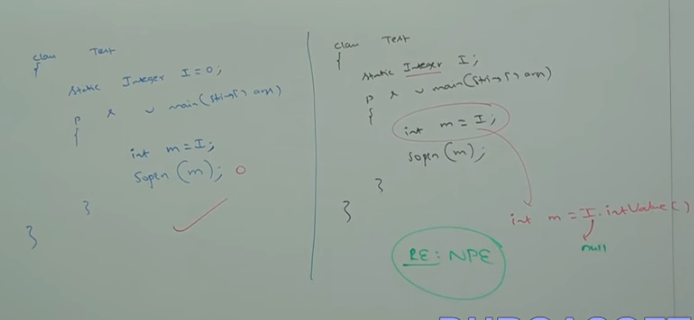 class Test
{
static Integer I=0;
p s v main(String[] args)
{
int m=I;
Sopln(m); 0
}
}
class Test
{
static Integer I;
p s v main(String[] args)
{
int m=I;
Sopln(m);
}
}
int m=I.intValue()
null
RE: NPE